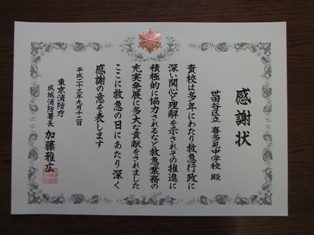 感謝状
世田谷区立喜多見中学校 殿
貴校は多年にわたり救急行政に
深い関心と理解を示されその推進に
積極的に協力されるなど救急業務の
充実発展に多大な貢献をされました
ここに救急の日にあたり深く
感謝の意を表します
平成二十三年九月十二日
東京消防庁
成城消防署長 加藤雅広